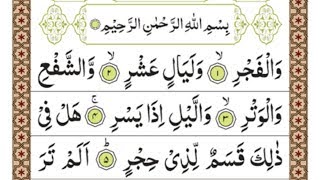 بِسْمِ اللهِ الرَّحْمٰنِ الرَّحِيْمِ
وَالْفَجْرِ ۙ‏﴿۱﴾ وَلَيَالٍ عَشْرٍ ۙ‏﴿۲﴾ وَّالشَّفْعِ
وَالْوَتْرِ ۙ‏﴿۳﴾ وَالَّيْلِ اِذَا يَسْرِ ۚ‏﴿۴﴾ هَلْ فِىْ
ذٰلِكَ قَسَمٌ لِّذِىْ حِجْرٍ ؕ‏﴿۵﴾ اَلَمْ تَرَ